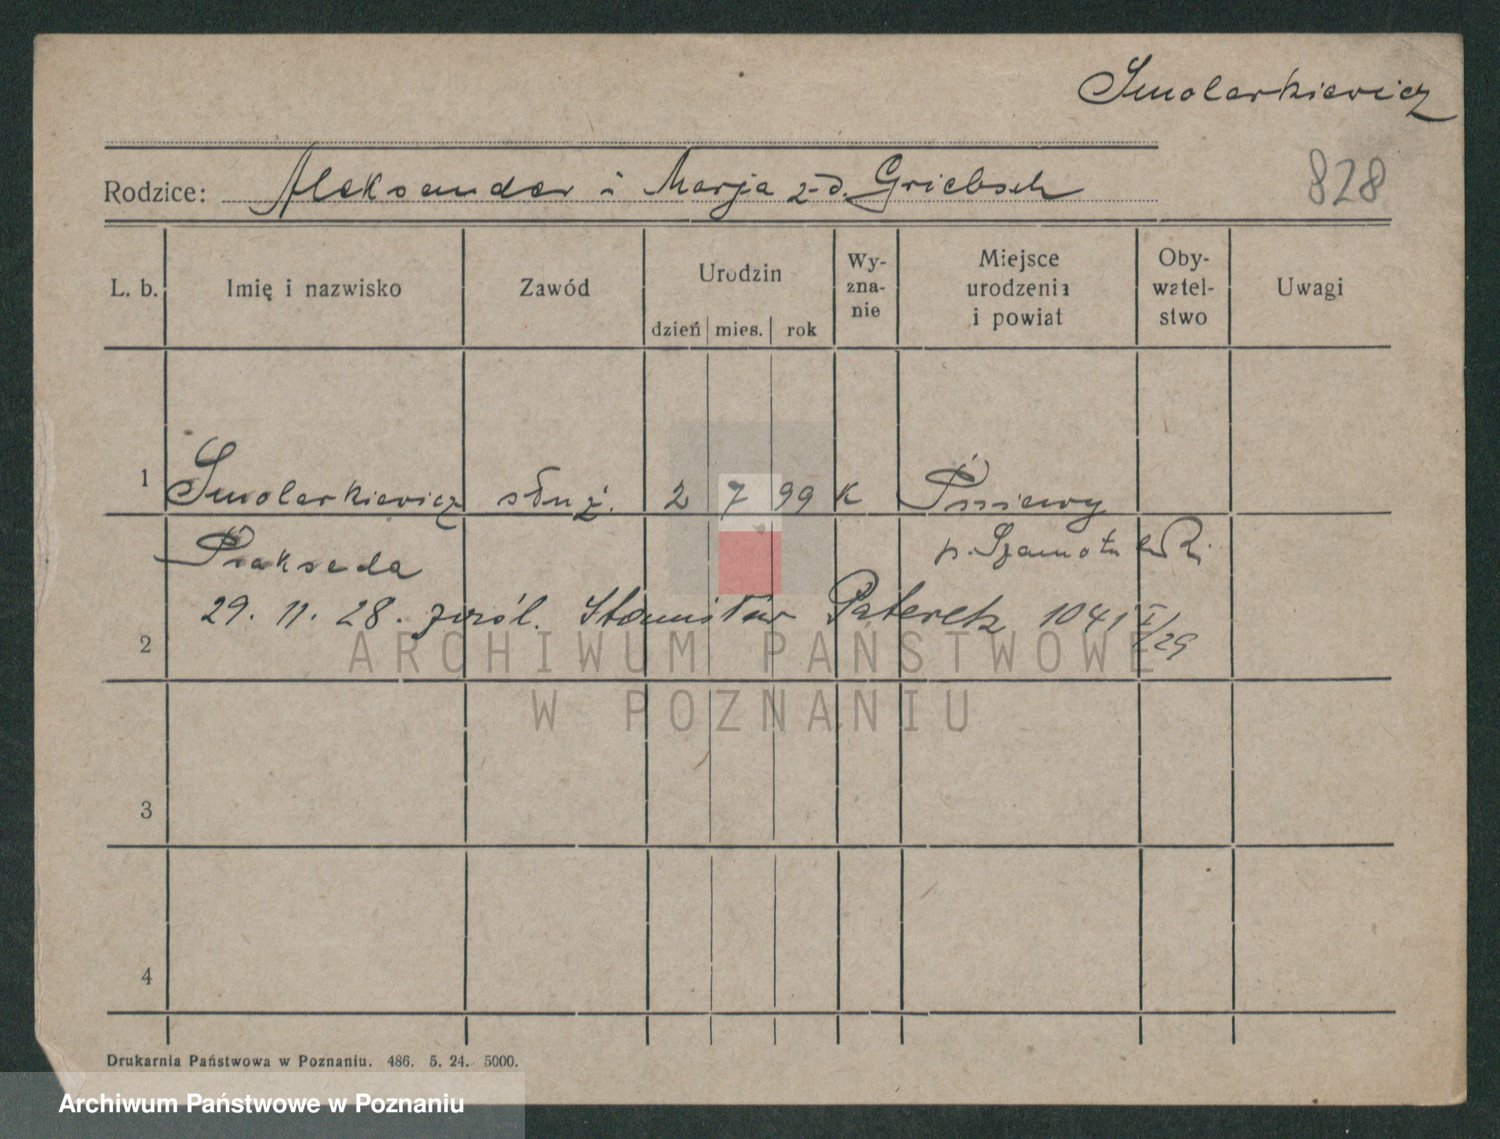 Smolarkiewicz
828
Rodzice: Aleksander i Marja z d. Griebsch
L. b. Imię i nazwisko Zawód Urodzin dzień mies. rok Wy-zna-nie Miejsce urodzenia i powiat Oby-watel-stwo Uwagi
1 Smolarkiewicz służ. 2 7 99 K Pniewy
Prakseda p. Szamotuły R.
29. 11. 28. Stanisław Paterek 1041 I/29
2
ARCHIWUM PAŃSTWOWE
W POZNANIU
3
4
Drukarnia Państwowa w Poznaniu. 486. 5. 24. 5000.
Archiwum Państwowe w Poznaniu